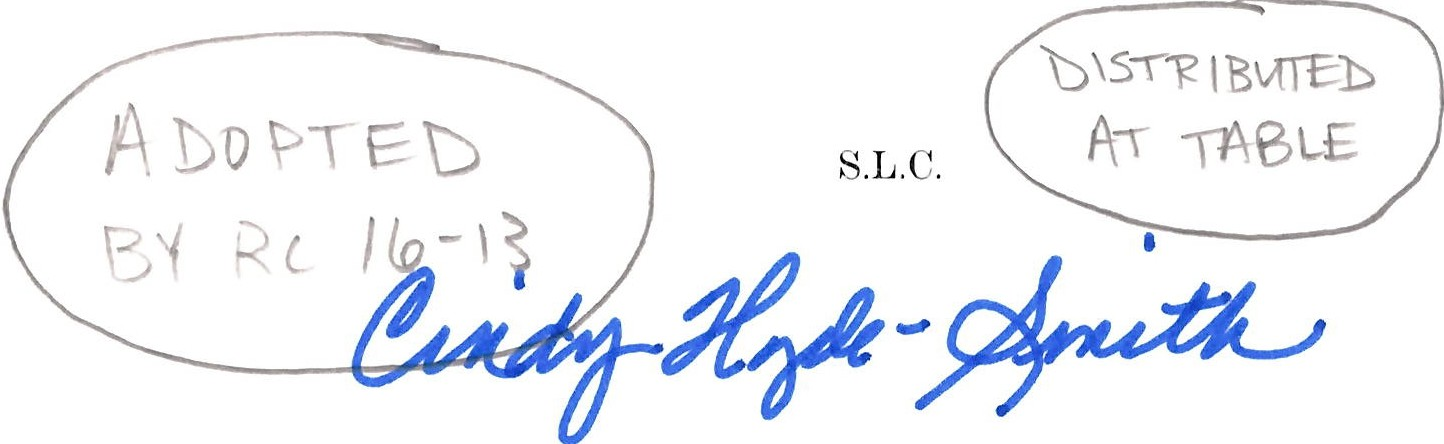 ADOPTED
BY RC 16-13
S.L.C.
DISTRIBUTED
AT TABLE
Cindy Hyde-Smith